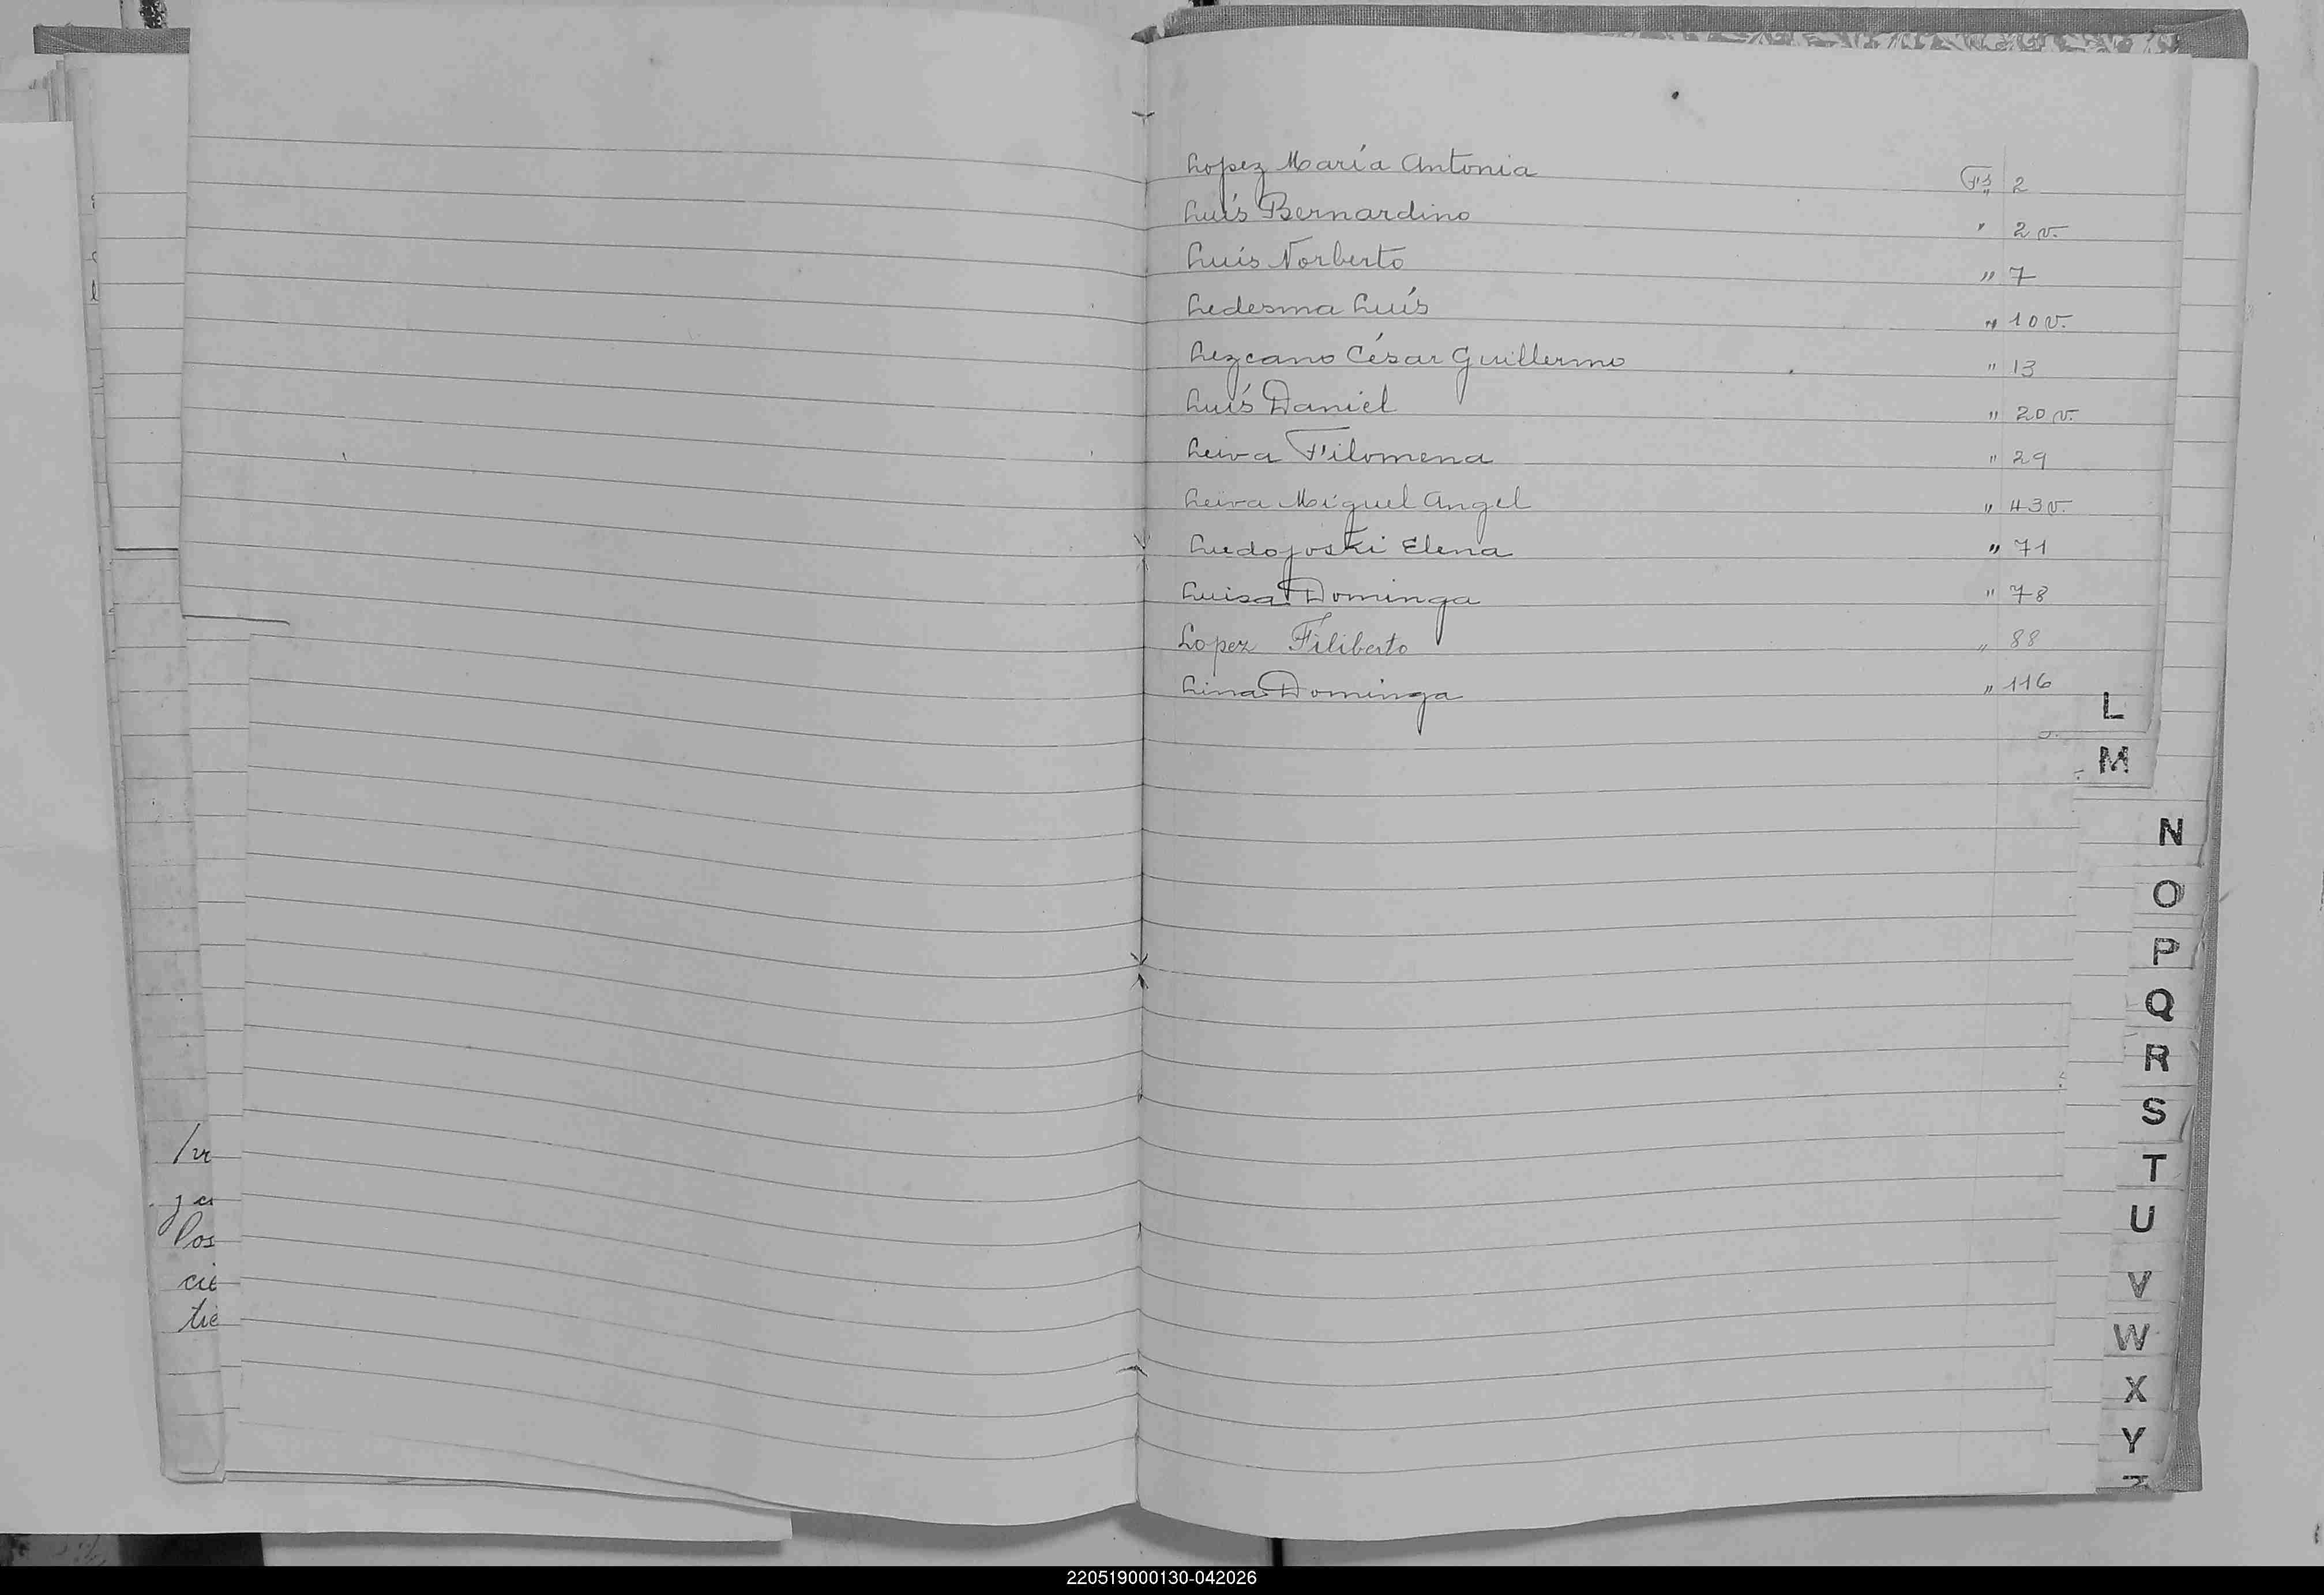 Lopez María Antonia Fs 2
Luís Bernardino " 2 v.
Luis Norberto " 7
Ledesma Luís " 10 v.
Lezcano César Guillermo " 13
Luís Daniel " 20 v.
Leiva Filomena " 29
Leiva Miguel Angel " 43 v.
Luedojoski Elena " 71
Luisa Dominga " 78
Lopez Filiberto " 88
Lina Dominga " 116
L
M
N
O
P
Q
R
S
T
U
V
W
X
Y
220519000130-042026